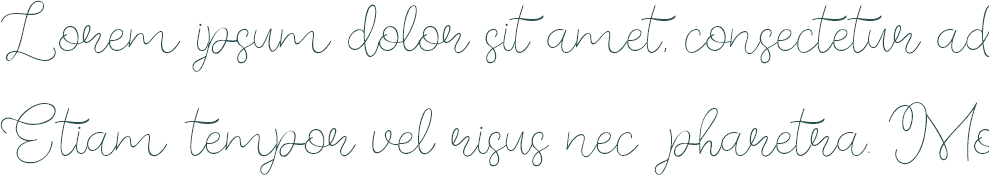 Lorem ipsum dolor sit amet, consectetur ad
Etiam tempor vel risus nec pharetra. Mo